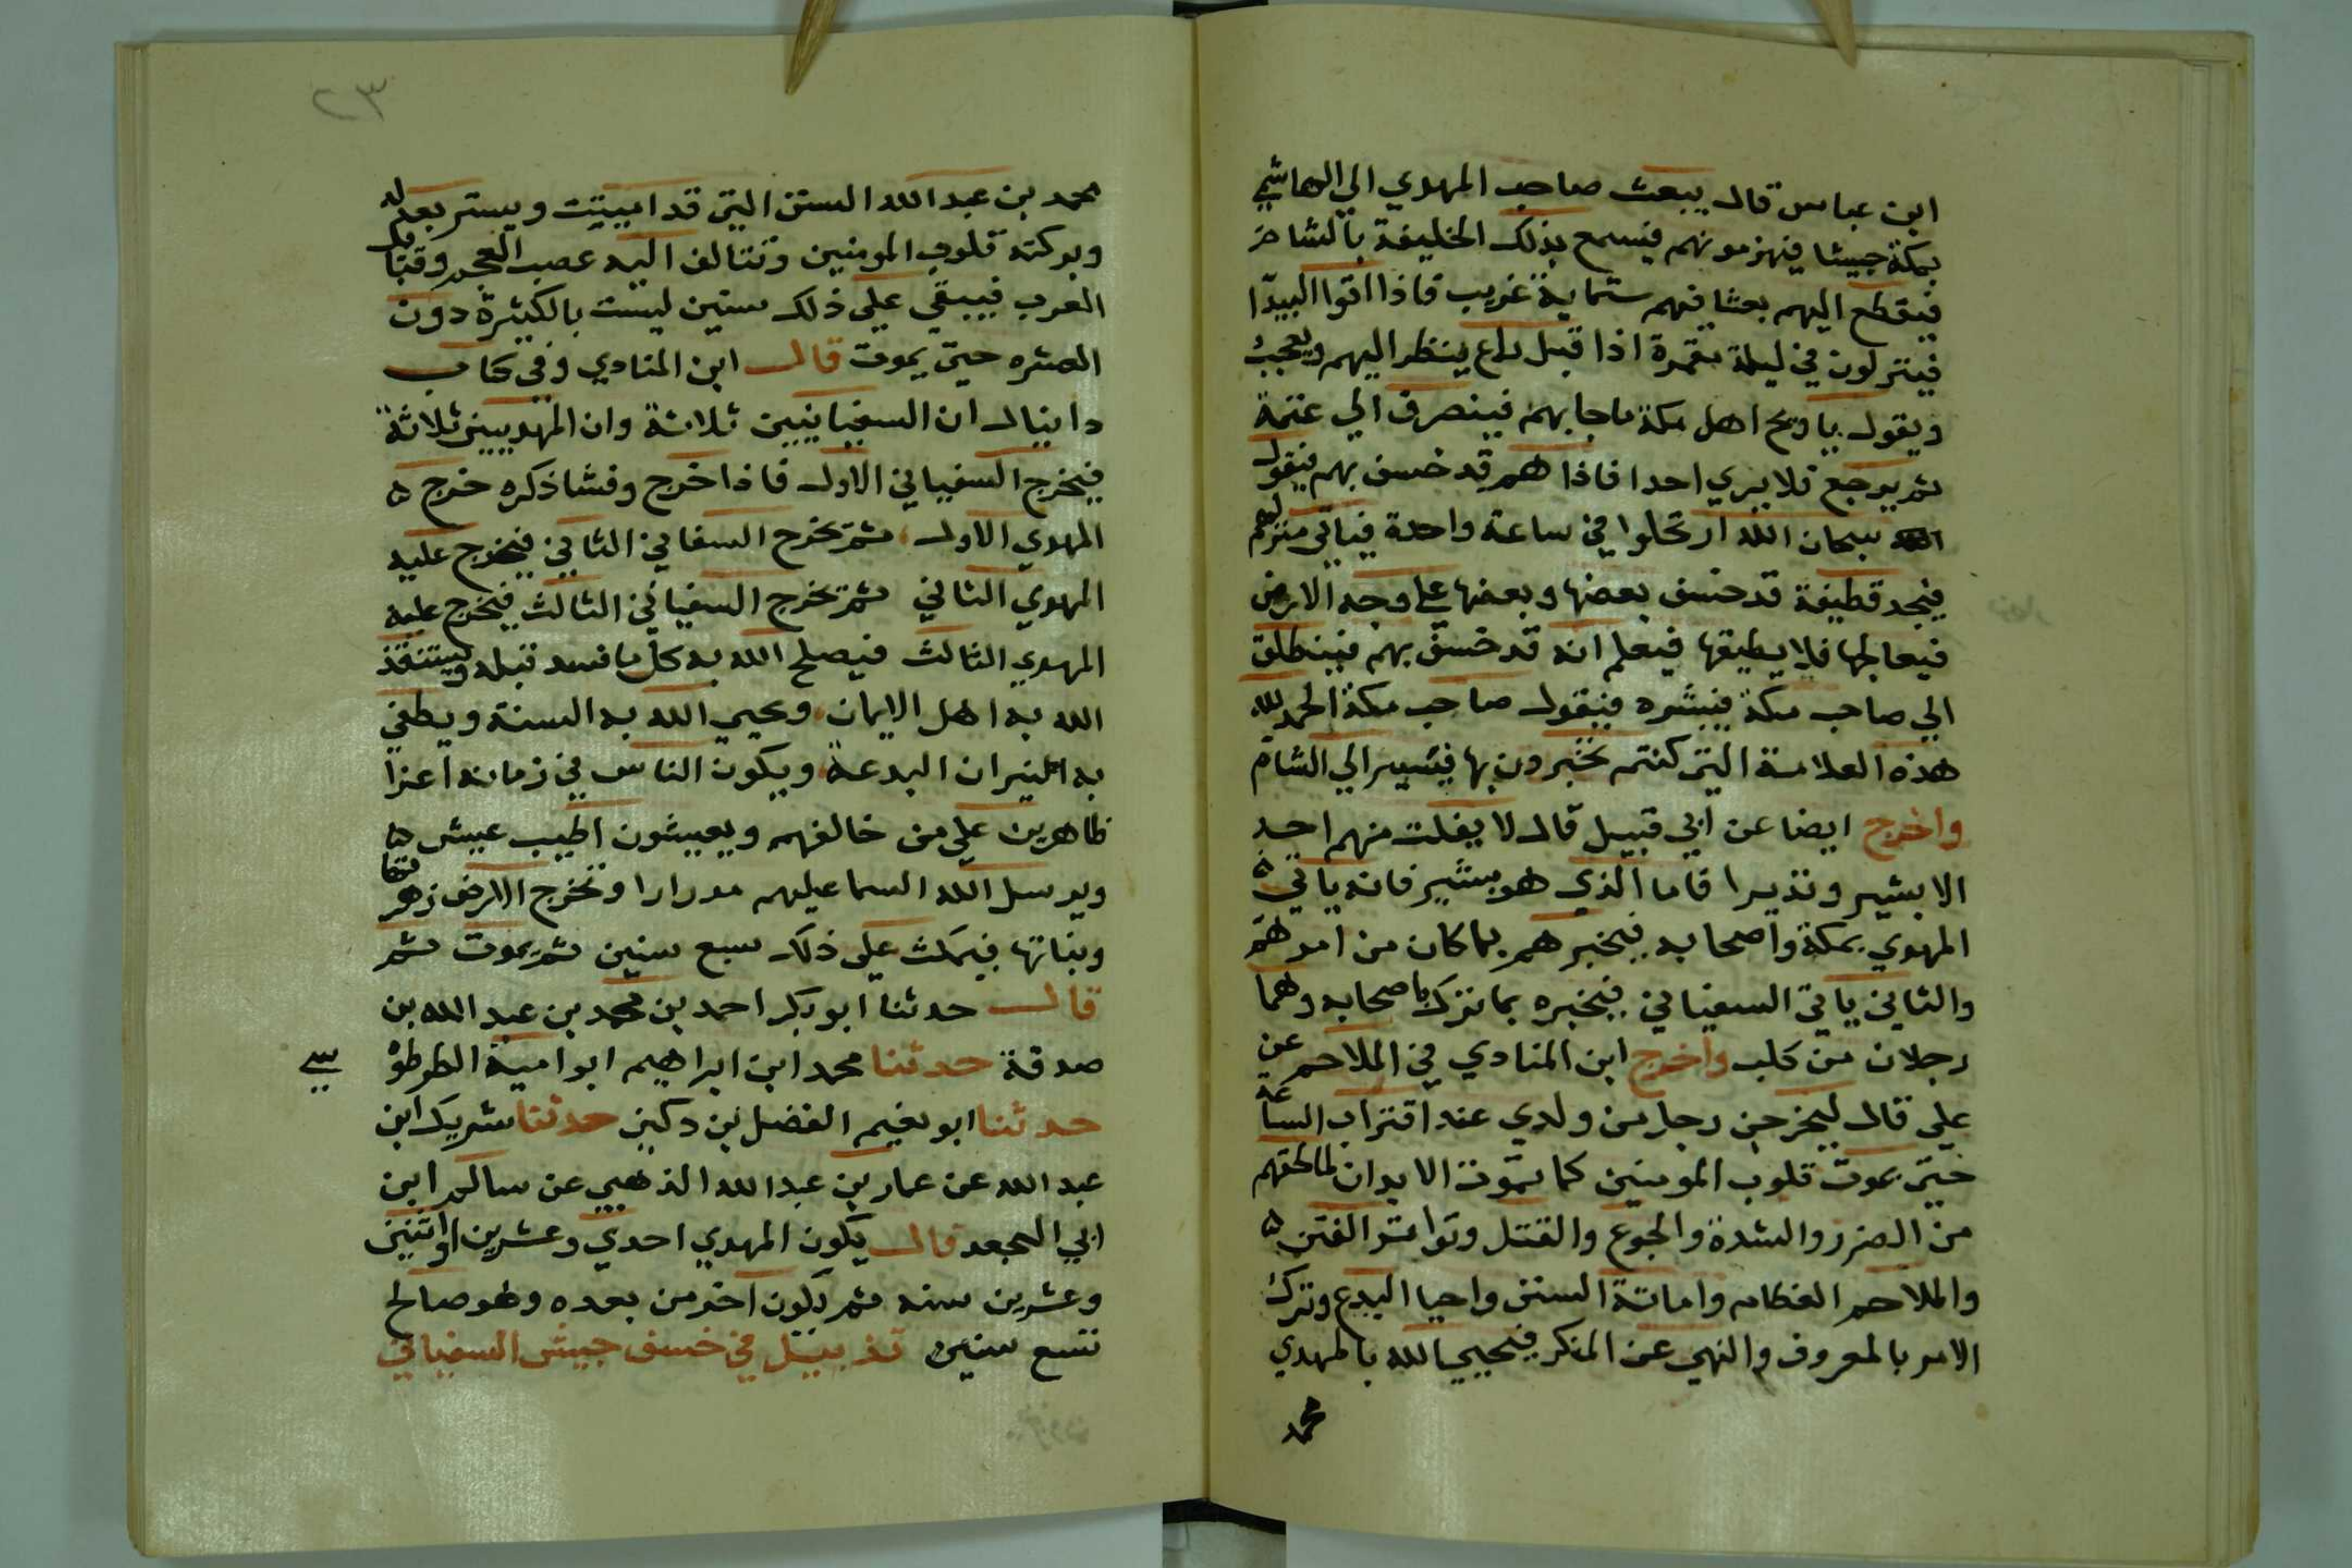 ابن عباس قال يبعث صاحب المهدي الي الهاشمي
بمكة جيشا فيهزمونهم فيسمع بذلك الخليفة بالشام
فيقطع اليهم بعثا فيهم ستماية غريب فاذا اتوا البيدا
فينزلون في ليلة مقمرة اذا قبل راع ينظر اليهم ويعجب
ويقول يا ويح اهل مكة ماجابهم فينصرف الي غنمة
ثم يرجع فلا يري احدا فاذا هم قد خسف بهم فيقول
سبحان الله ارتحلوا في ساعة واحدة فياتي منزلهم
فيجد قطيفة قد خسف بعضها وبعضها علي وجه الارض
فيعالجها فلا يطيقها فيعلم انه قد خسف بهم فينطلق
الي صاحب مكة فيبشره فيقول صاحب مكة الحمد لله
هذه العلامة التي كنتم تخبرون بها فيسير الي الشام
واخرج ايضا عن ابي قبيل قال لا يفلت منهم احد
الا بشير ونذيرا فاما الذي هو بشير فانه ياتي ه
المهدي بمكة واصحابه فيخبرهم بما كان من امرهم
والثاني ياتي السفياني فيخبره بما نزل باصحابه وهما
رجلان من كلب واخرج ابن المنادي في الملاحم عن
علي قال ليخرجن رجل من ولدي عند اقتراب الساعة
حتي يموت قلوب المومنين كما تموت الابدان لما لحقهم
من الضرر والشدة والجوع والقتل وتواتر الفتن ه
والملاحم العظام واماتة السنن واحيا البدع وترك
الامر بالمعروف والنهي عن المنكر فيحيي الله بالمهدي
محمد
٢٣
محمد بن عبد الله السنن التي قد اميتت ويسر بعدله
وبركته قلوب المومنين وتتالف اليه عصب العجم وقبايل
العرب فيبقي علي ذلك سنين ليست بالكثيرة دون
العشره حتي يموت قال ابن المنادي وفي كتاب
دانيال ان السفيانيين ثلاثة وان المهديين ثلاثة
فيخرج السفياني الاول فاذا خرج وفشا ذكره خرج ه
المهدي الاول ثم يخرج السفاني الثاني فيخرج عليه
المهدي الثاني ثم يخرج السفياني الثالث فيخرج عليه
المهدي الثالث فيصلح الله به كل ما فسد قبله ويستنقذ
الله به اهل الايمان ويحيي الله به السنة ويطفي
به النيران البدعة ويكون الناس في زمانه اعزا
ظاهرين علي من خالفهم ويعيشون اطيب عيش ه
ويرسل الله السما عليهم مدرارا وتخرج الارض زهرتها
ونباتها فيمكث علي ذلك سبع سنين ثم يموت ثم
قال حدثنا ابو بكر احمد بن محمد بن عبد الله بن
صدقة حدثنا محمد ابن ابراهيم ابو امية الطرطو سي
حدثنا ابو نعيم الفضل بن دكين حدثنا شريك ابن
عبد الله عن عمار بن عبد الله الذهبي عن سالم ابن
ابي الجعد قال يكون المهدي احدي وعشرين او اثنين
وعشرين سنه ثم يكون اخر من بعده وهو صالح
تسع سنين تذييل في خسف جيش السفياني